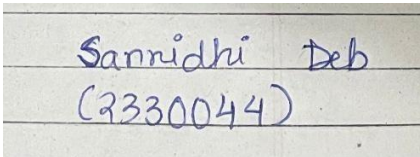 Sannidhi Deb
(2330044)